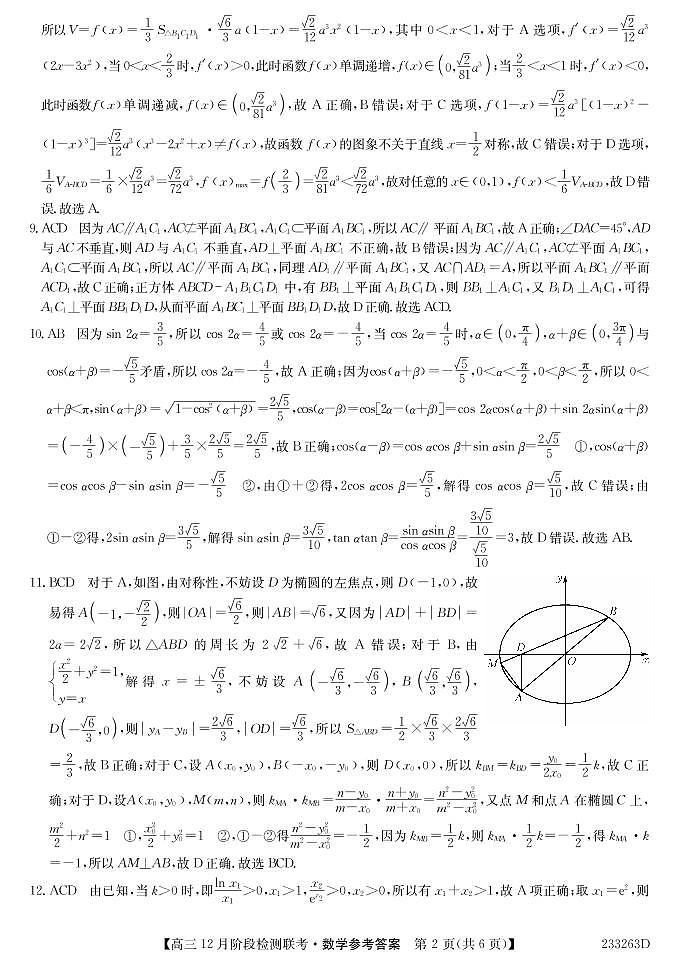 所以V=f(x)=\frac{1}{3}S_{△B_1C_1D_1}·\frac{\sqrt{6}}{3}a(1-x)=\frac{\sqrt{2}}{12}a^3x^2(1-x),其中0<x<1,对于A选项,f'(x)=\frac{\sqrt{2}}{12}a^3
(2x-3x^2),当0<x<\frac{2}{3}时,f'(x)>0,此时函数f(x)单调递增,f(x)∈(0,\frac{\sqrt{2}}{81}a^3);当\frac{2}{3}<x<1时,f'(x)<0,
此时函数f(x)单调递减,f(x)∈(0,\frac{\sqrt{2}}{81}a^3),故A正确,B错误;对于C选项,f(1-x)=\frac{\sqrt{2}}{12}a^3[(1-x)^2-
(1-x)^3]=\frac{\sqrt{2}}{12}a^3(x^3-2x^2+x)≠f(x),故函数f(x)的图象不关于直线x=\frac{1}{2}对称,故C错误;对于D选项,
\frac{1}{6}V_{A-BCD}=\frac{1}{6}×\frac{\sqrt{2}}{12}a^3=\frac{\sqrt{2}}{72}a^3,f(x)_{max}=f(\frac{2}{3})=\frac{\sqrt{2}}{81}a^3<\frac{\sqrt{2}}{72}a^3,故对任意的x∈(0,1),f(x)<\frac{1}{6}V_{A-BCD},故D错
误.故选A.
9.ACD 因为AC∥A_1C_1,AC⊄平面A_1BC_1,A_1C_1⊂平面A_1BC_1,所以AC∥平面A_1BC_1,故A正确;∠DAC=45°,AD
与AC不垂直,则AD与A_1C_1不垂直,AD⊥平面A_1BC_1不正确,故B错误;因为AC∥A_1C_1,AC⊄平面A_1BC_1,
A_1C_1⊂平面A_1BC_1,所以AC∥平面A_1BC_1,同理AD_1∥平面A_1BC_1,又AC∩AD_1=A,所以平面A_1BC_1∥平面
ACD_1,故C正确;正方体ABCD-A_1B_1C_1D_1中,有BB_1⊥平面A_1B_1C_1D_1,则BB_1⊥A_1C_1,又B_1D_1⊥A_1C_1,可得
A_1C_1⊥平面BB_1D_1D,从而平面A_1BC_1⊥平面BB_1D_1D,故D正确.故选ACD.
10.AB 因为sin 2α=\frac{3}{5},所以cos 2α=\frac{4}{5}或cos 2α=-\frac{4}{5},当cos 2α=\frac{4}{5}时,α∈(0,\frac{π}{4}),α+β∈(0,\frac{3π}{4})与
cos(α+β)=-\frac{\sqrt{5}}{5}矛盾,所以cos 2α=-\frac{4}{5},故A正确;因为cos(α+β)=-\frac{\sqrt{5}}{5},0<α<\frac{π}{2},0<β<\frac{π}{2},所以0<
α+β<π,sin(α+β)=\sqrt{1-cos^2(α+β)}=\frac{2\sqrt{5}}{5},cos(α-β)=cos[2α-(α+β)]=cos 2αcos(α+β)+sin 2αsin(α+β)
=(-\frac{4}{5})×(-\frac{\sqrt{5}}{5})+\frac{3}{5}×\frac{2\sqrt{5}}{5}=\frac{2\sqrt{5}}{5},故B正确;cos(α-β)=cos αcos β+sin αsin β=\frac{2\sqrt{5}}{5} ①,cos(α+β)
=cos αcos β-sin αsin β=-\frac{\sqrt{5}}{5} ②,由①+②得,2cos αcos β=\frac{\sqrt{5}}{5},解得cos αcos β=\frac{\sqrt{5}}{10},故C错误;由
①-②得,2sin αsin β=\frac{3\sqrt{5}}{5},解得sin αsin β=\frac{3\sqrt{5}}{10},tan αtan β=\frac{sin αsin β}{cos αcos β}=\frac{\frac{3\sqrt{5}}{10}}{\frac{\sqrt{5}}{10}}=3,故D错误.故选AB.
11.BCD 对于A,如图,由对称性,不妨设D为椭圆的左焦点,则D(-1,0),故
易得A(-1,-\frac{\sqrt{2}}{2}),则|OA|=\frac{\sqrt{6}}{2},则|AB|=\sqrt{6},又因为|AD|+|BD|=
2a=2\sqrt{2},所以△ABD的周长为2\sqrt{2}+\sqrt{6},故A错误;对于B,由
{\frac{x^2}{2}+y^2=1,
y=x
解得x=±\frac{\sqrt{6}}{3},不妨设A(-\frac{\sqrt{6}}{3},-\frac{\sqrt{6}}{3}),B(\frac{\sqrt{6}}{3},\frac{\sqrt{6}}{3}),
D(-\frac{\sqrt{6}}{3},0),则|y_A-y_B|=\frac{2\sqrt{6}}{3},|OD|=\frac{\sqrt{6}}{3},所以S_{△ABD}=\frac{1}{2}×\frac{\sqrt{6}}{3}×\frac{2\sqrt{6}}{3}
y
B
D
M
O
x
A
=\frac{2}{3},故B正确;对于C,设A(x_0,y_0),B(-x_0,-y_0),则D(x_0,0),所以k_{BM}=k_{BD}=\frac{y_0}{2x_0}=\frac{1}{2}k,故C正
确;对于D,设A(x_0,y_0),M(m,n),则k_{MA}·k_{MB}=\frac{n-y_0}{m-x_0}·\frac{n+y_0}{m+x_0}=\frac{n^2-y_0^2}{m^2-x_0^2},又点M和点A在椭圆C上,
\frac{m^2}{2}+n^2=1 ①,\frac{x_0^2}{2}+y_0^2=1 ②,①-②得\frac{n^2-y_0^2}{m^2-x_0^2}=-\frac{1}{2},因为k_{MB}=\frac{1}{2}k,则k_{MA}·\frac{1}{2}k=-\frac{1}{2},得k_{MA}·k
=-1,所以AM⊥AB,故D正确.故选BCD.
12.ACD 由已知,当k>0时,即\frac{ln x_1}{x_1}>0,x_1>1,\frac{x_2}{e^{x_2}}>0,x_2>0,所以有x_1+x_2>1,故A项正确;取x_1=e^2,则
【高三12月阶段检测联考·数学参考答案 第2页(共6页)】 233263D